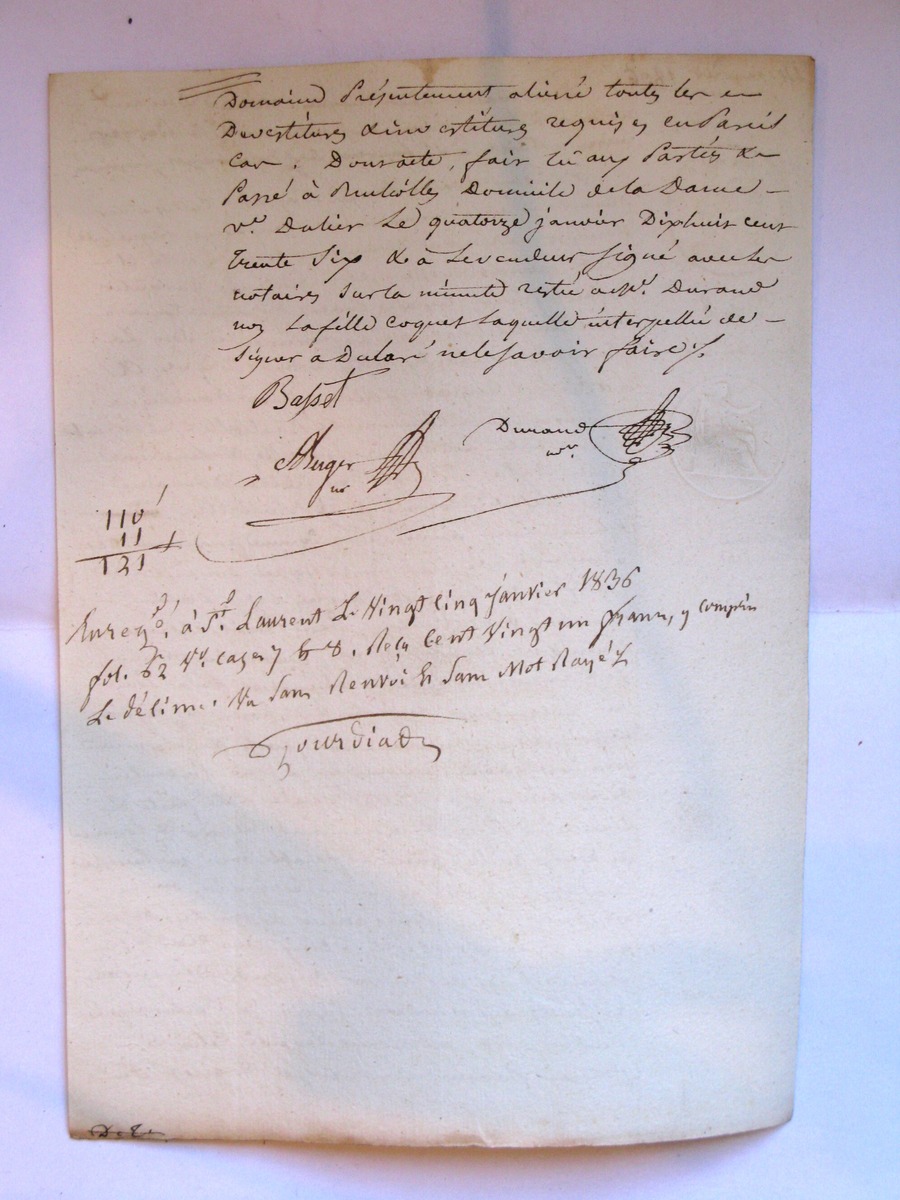 Domaine Présentement aliéné toutes les en
Devestitures & investitures requises en Pareil
Cas. Dont acte, fait lû aux Parties &
Passé à Domicile de la Dame –
v.e Dalier Le quatorze janvier Dix huit cent
trente Six & à Levendeur Signé avec les
notaires Sur la minute restée a M.e Durand
non La fille coquet Laquelle interpellée de –
Signer a Déclaré ne le savoir faire ./.
Basset
ABerger
nre
Durand
nre
110
11
121
Enregé. à St. Laurent Le Vingt cinq janvier 1836
fol. 62 Vo. cases 7 & 8. Reçu Cent Vingt un francs, y compris
Le décime. Va Sans Renvoi & Sans Mot Rayé
Gourdiat